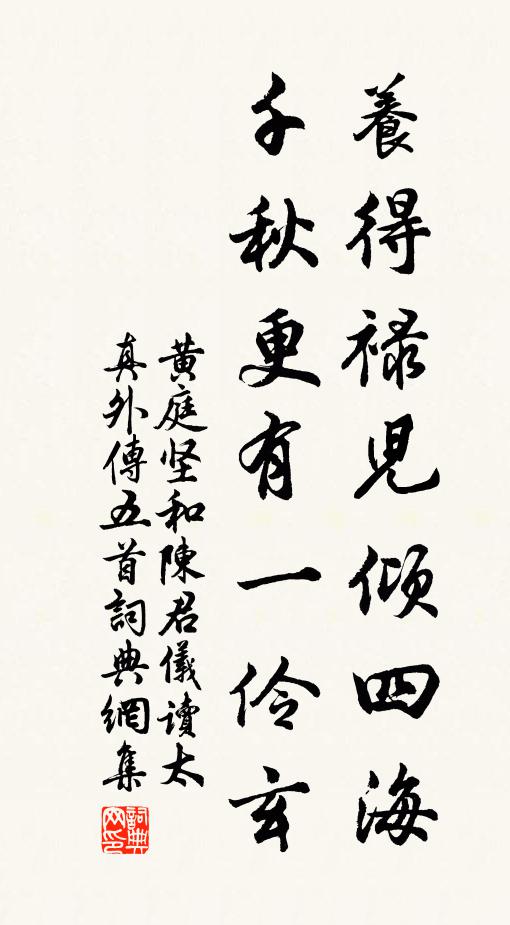 養得祿兒傾四海
千秋更有一伶玄
黄庭坚和陳君儀讀太
真外傳五首詞典網集
詞典
网印